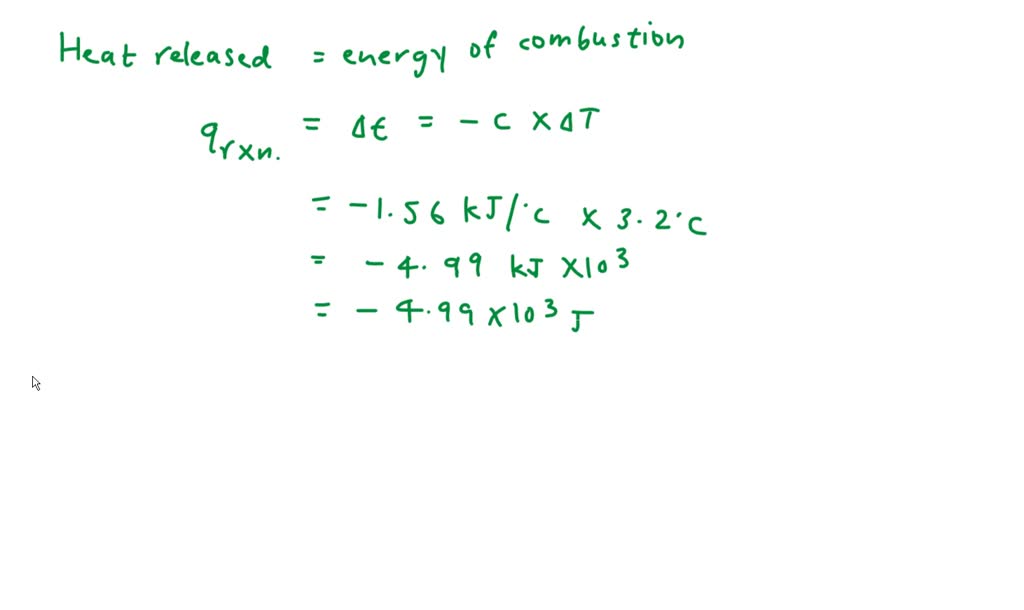 Heat released = energy of combustion
qrxn. = ΔE = - C × ΔT
= -1.56 kJ/°C × 3.2°C
= - 4.99 kJ ×10³
= - 4.99 ×10³ J